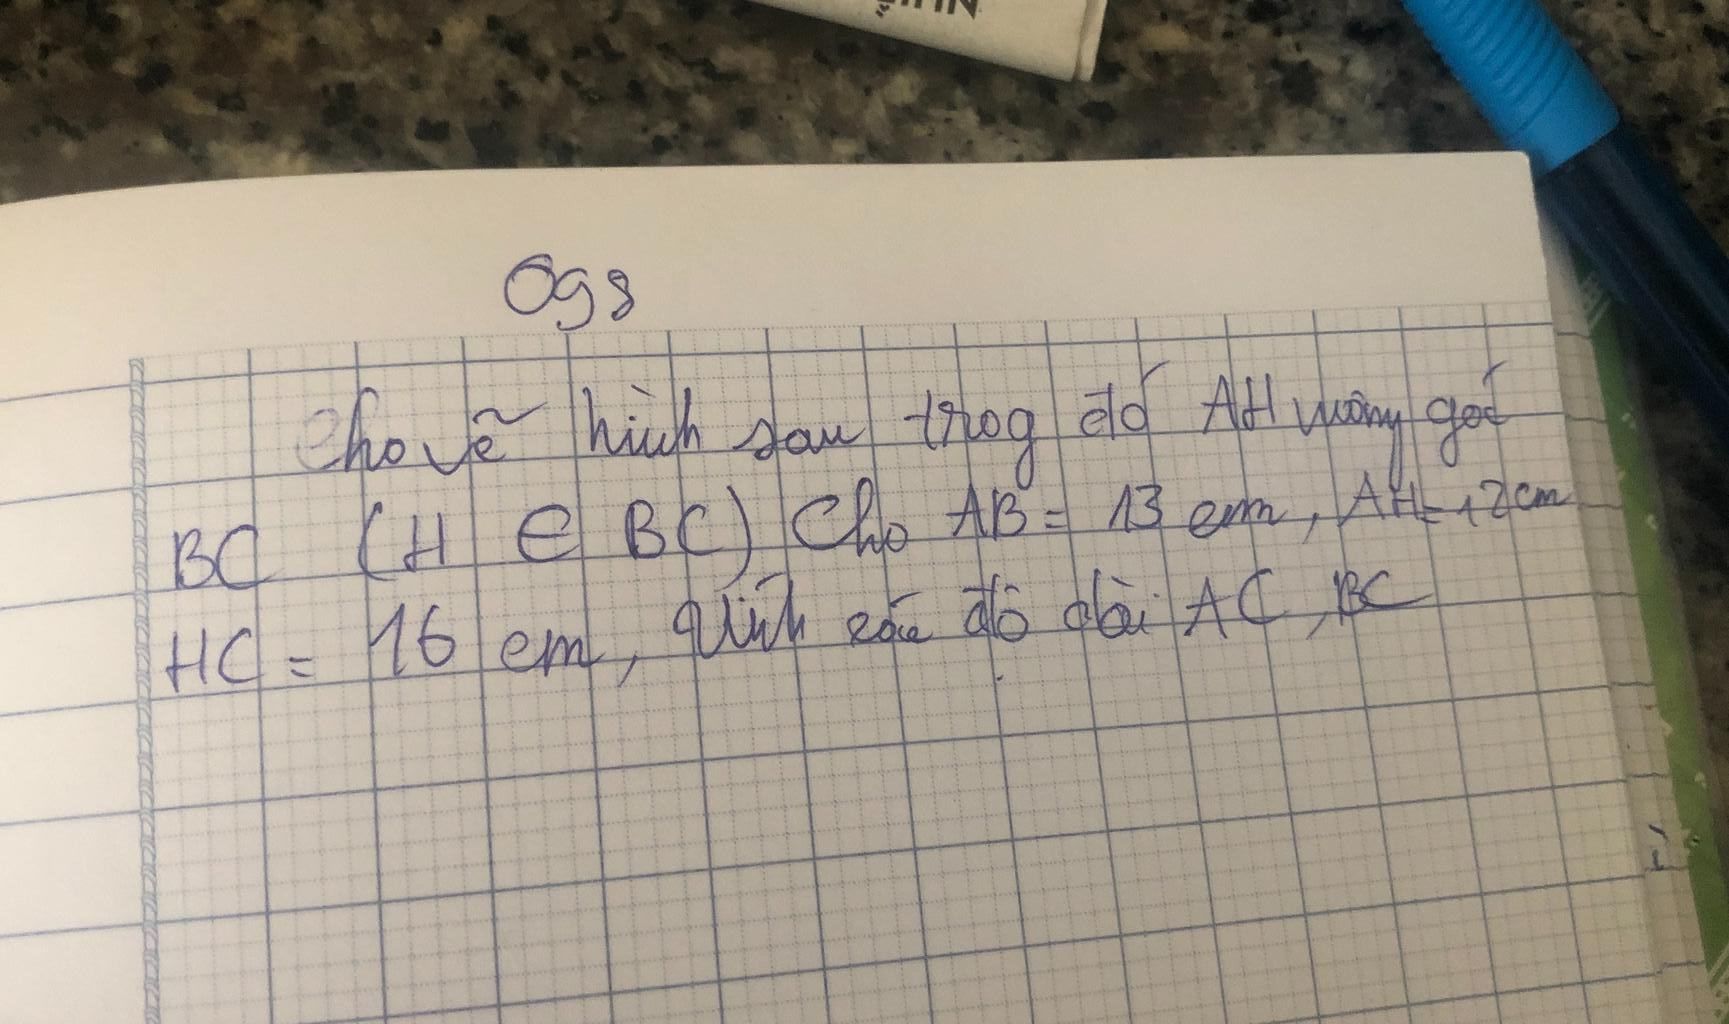 098
Cho vẽ hình sau trog đó AH vuông goć
BC (H ∈ BC) Cho AB = 13 cm, AH = 12 cm
HC = 16 cm, tính các độ dài AC, BC